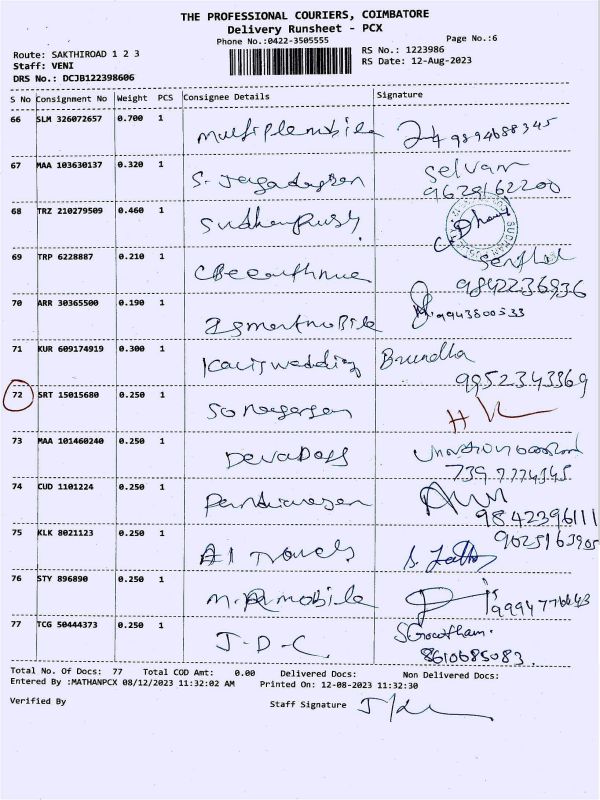 THE PROFESSIONAL COURIERS, COIMBATORE
Delivery Runsheet - PCX
Phone No.:0422-3505555
Page No.:6
Route: SAKTHIROAD 1 2 3
Staff: VENI
DRS No.: DCJB122398606
RS No.: 1223986
RS Date: 12-Aug-2023
S No Consignment No Weight PCS Consignee Details Signature
66 SLM 326072657 0.700 1 multiplemobile 9894688345
67 MAA 103630137 0.320 1 S. Selvan
9629162200
68 TRZ 210279509 0.460 1
69 TRP 6228887 0.210 1 Senthil
9842236936
70 ARR 30365500 0.190 1 mobile 9943800533
71 KUR 609174919 0.300 1 wedding Brundha
9952343369
72 SRT 15015680 0.250 1
73 MAA 101460240 0.250 1 Devadass
74 CUD 1101224 0.250 1
9842396111
75 KLK 8021123 0.250 1 A1 Travels
9025163905
76 STY 896890 0.250 1 mobile
77 TCG 50444373 0.250 1 J-D-C S Gowtham.
8610685083.
Total No. Of Docs: 77 Total COD Amt: 0.00 Delivered Docs: Non Delivered Docs:
Entered By :MATHANPCX 08/12/2023 11:32:02 AM Printed On: 12-08-2023 11:32:30
Verified By Staff Signature